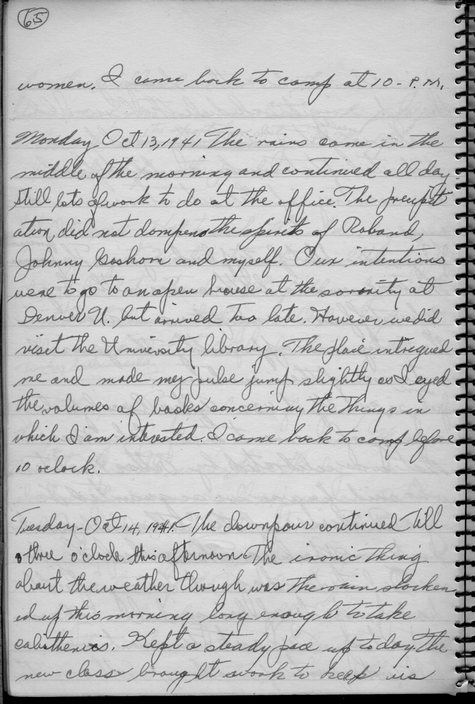 65
women. I came back to camp at 10 - P.M.
Monday - Oct 13, 1941 The rains came in the
middle of the morning and continued all day
still lots of work to do at the office. The precipit
ation did not dampen the spirits of Roband,
Johnny Goshorn and myself. Our intentions
were to go to an open house at the sorority at
Denver U. but arrived too late. However we did
visit the University library. The place intregued
me and made my pulse jump slightly as I eyed
the volumes of books concerning the things in
which I am intrested. I came back to camp before
10 oclock.
Tuesday - Oct 14, 1941. The downpour continued till
three o'clock this afternoon The ironic thing
about the weather though, was the rain slacken
ed up this morning long enough to take
calisthenics. Kept a steady pace up today the
new class brought work to keep us